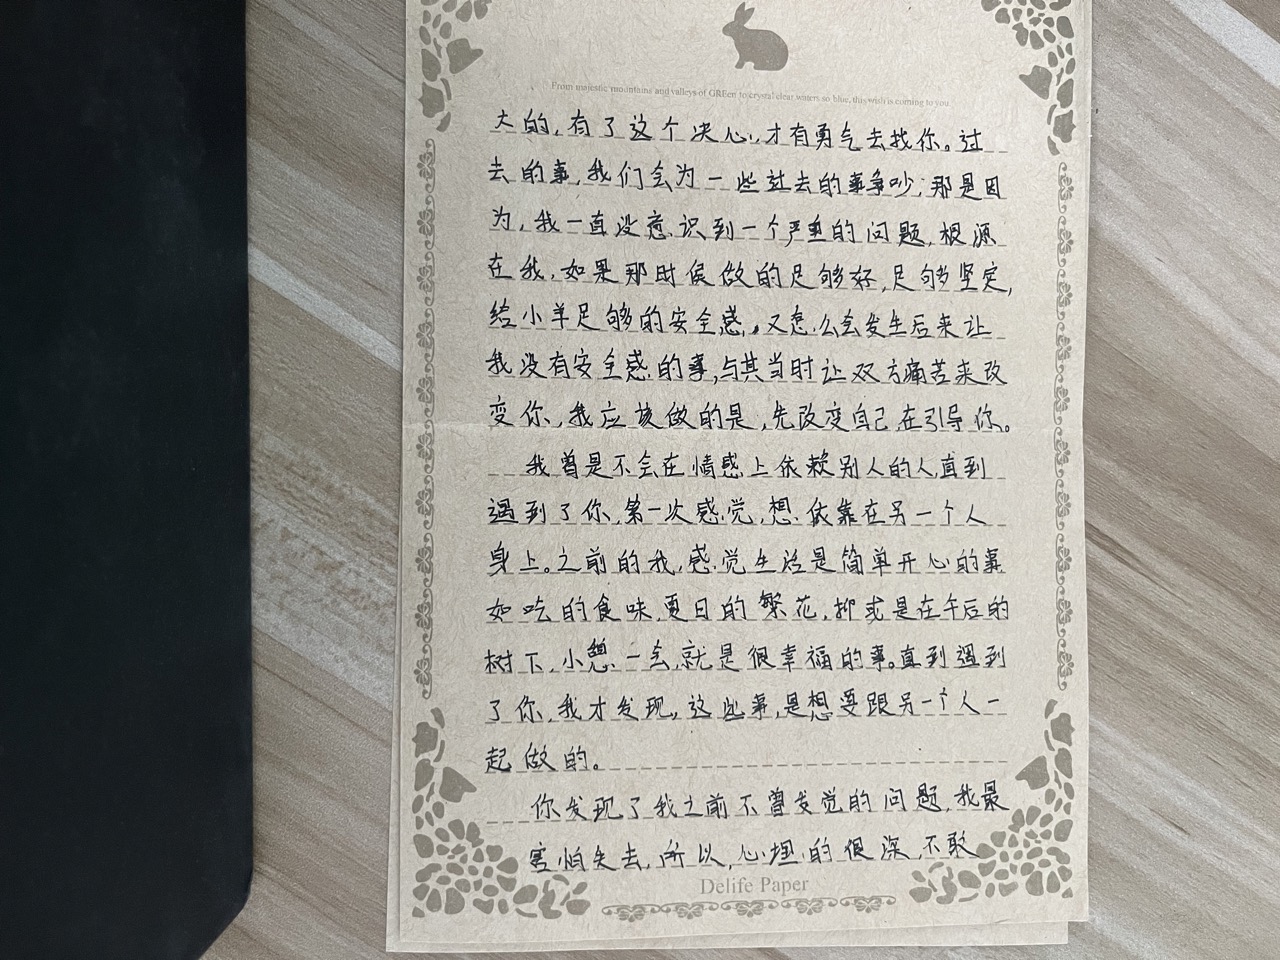 From majestic mountains and valleys of GREen to crystal clear waters so blue, this wish is coming to you.
大的，有了这个决心，才有勇气去找你。过
去的事，我们会为一些过去的事争吵，那是因
为，我一直没意识到一个严重的问题，根源
在我，如果那时候做的足够好，足够坚定，
给小羊足够的安全感，又怎么会发生后来让
我没有安全感的事，与其当时让双方痛苦来改
变你，我应该做的是，先改变自己，在引导你。
我曾是不会在情感上依赖别人的人，直到
遇到了你，第一次感觉，想依靠在另一个人
身上。之前的我，感觉生活是简单开心的事
如吃的食味，夏日的繁花，抑或是在午后的
树下，小憩一会，就是很幸福的事。直到遇到
了你，我才发现，这些事，是想要跟另一个人一
起做的。
你发现了我之前不曾发觉的问题，我最
害怕失去，所以，心埋的很深，不敢
Delife Paper